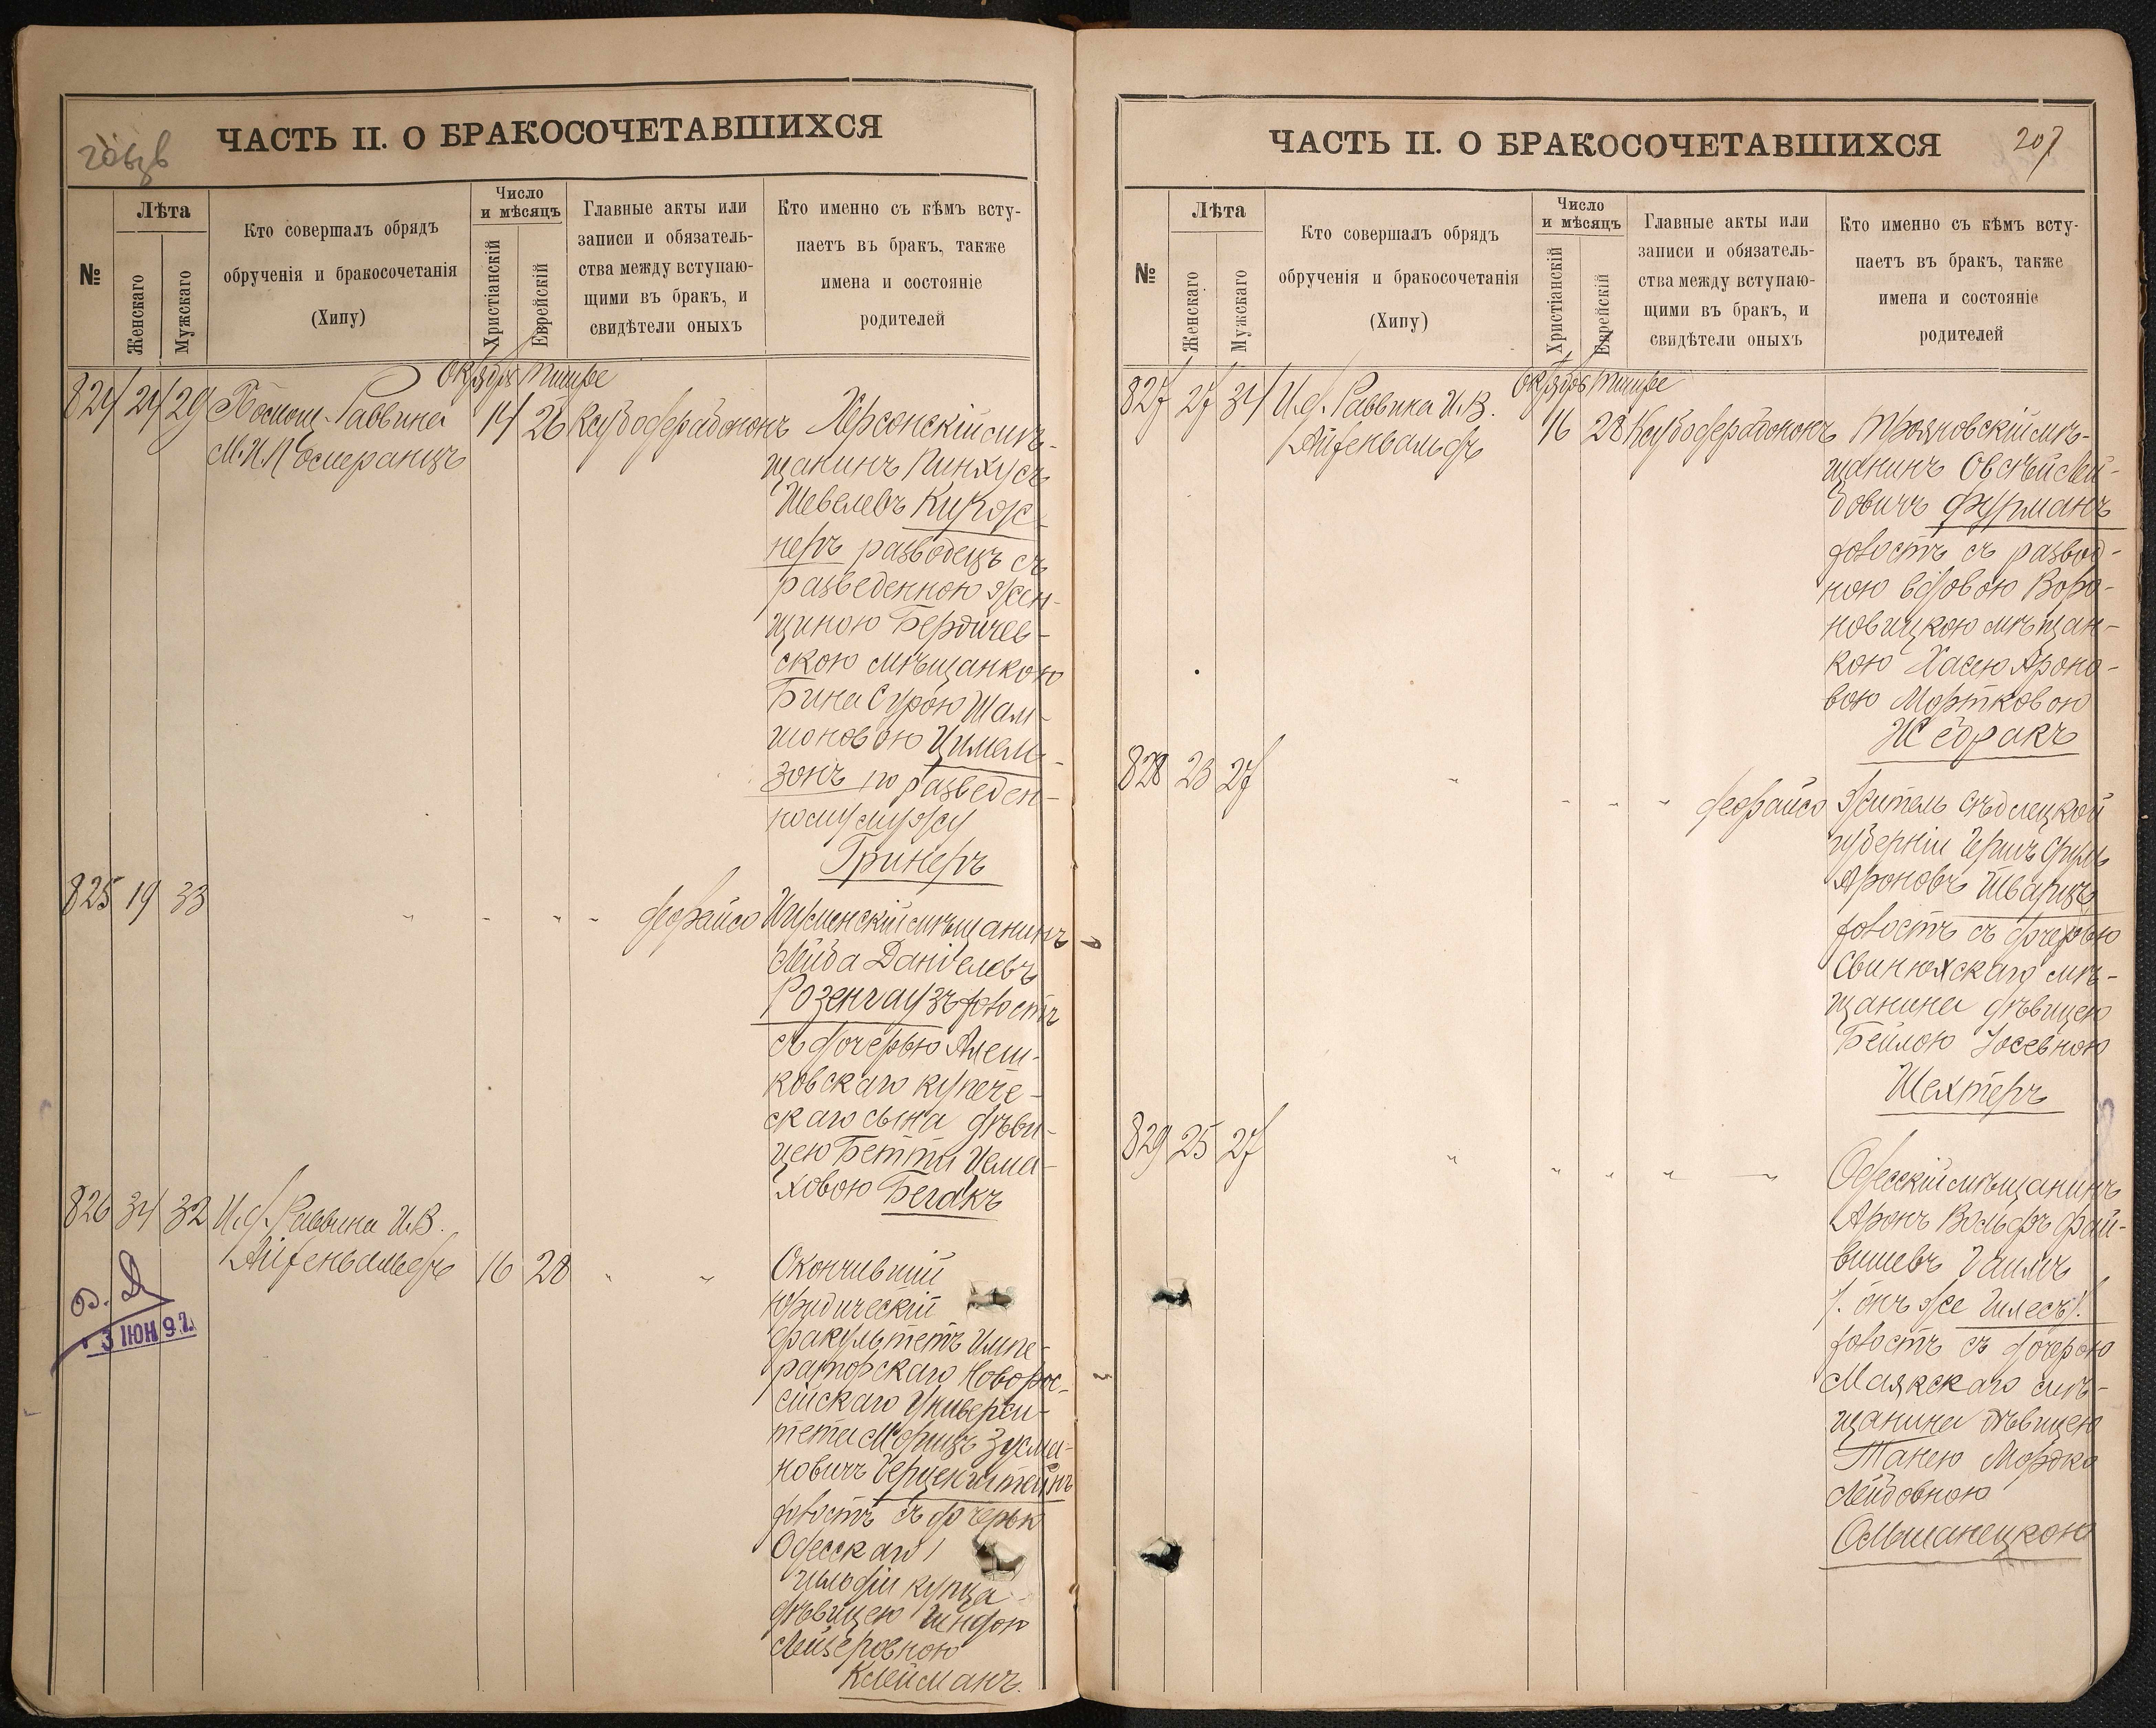 ЧАСТЬ II. О БРАКОСОЧЕТАВШИХСЯ
№
Лѣта
Женскаго
Мужскаго
Кто совершалъ обрядъ
обрученія и бракосочетанія
(Хипу)
Число
и мѣсяцъ
Христіанскій
Еврейскій
Главные акты или
записи и обязатель-
ства между вступаю-
щими въ бракъ, и
свидѣтели оныхъ
Кто именно съ кѣмъ всту-
паетъ въ бракъ, также
имена и состояніе
родителей
Октябрь Тишре
824 24 29 Помощ. Раввина 14 26
Херсонскій мѣ-
щанинъ Пинхусъ
Шевелевъ
неръ разводецъ съ
разведенною жен-
щиною Бердичев-
скою мѣщанкою
Бина Сурою Шам-
шоновою Цимем-
зонъ по разведен-
ному мужу
Гринеръ
825 19 33
Игуменскій мѣщанинъ
Лейба Даніеловъ
Розенгаузъ холостъ
съ дочерью Алеш-
ковскаго купече-
скаго сына дѣви-
цею Бетти Исма-
ховою Бегакъ
826 34 32 И.д. Раввина И.В.
Айзенвальдъ 16 28
3 ІЮН 97.
Окончившій
юридическій
факультетъ Импе-
раторскаго Новорос-
сійскаго Универси-
тета Морицъ Зусма-
новичъ Герценштейнъ
холостъ съ дочерью
Одесскаго 1
гильдіи купца
дѣвицею Гиндою
Лейзеровною
Клейманъ.
ЧАСТЬ II. О БРАКОСОЧЕТАВШИХСЯ
207
№
Лѣта
Женскаго
Мужскаго
Кто совершалъ обрядъ
обрученія и бракосочетанія
(Хипу)
Число
и мѣсяцъ
Христіанскій
Еврейскій
Главные акты или
записи и обязатель-
ства между вступаю-
щими въ бракъ, и
свидѣтели оныхъ
Кто именно съ кѣмъ всту-
паетъ въ бракъ, также
имена и состояніе
родителей
Октябрь Тишре
827 27 34 И.д. Раввина И.В. 16 28
Айзенвальдъ
Трояновскій мѣ-
щанинъ Овсѣй Лей-
бовичъ Фурманъ
холостъ съ развод-
ною вдовою Воро-
новицкою мѣщан-
кою Хасею Ароно-
вою Мортковою
Жебракъ
828 23 27
Житель Сѣдлецкой
губерніи Гершъ Сруль
Ароновъ Шварцъ
холостъ съ дочерью
Свинюхскаго мѣ-
щанина дѣвицею
Бейлою Іосевною
Шехтеръ
829 25 27
Одесскій мѣщанинъ
Аронъ Вольфъ Фай-
вишевъ
/. онъ же Гилесъ/.
холостъ съ дочерью
Маякскаго мѣ-
щанина дѣвицею
Танею Мордко
Лейбовною
Ольшанецкою